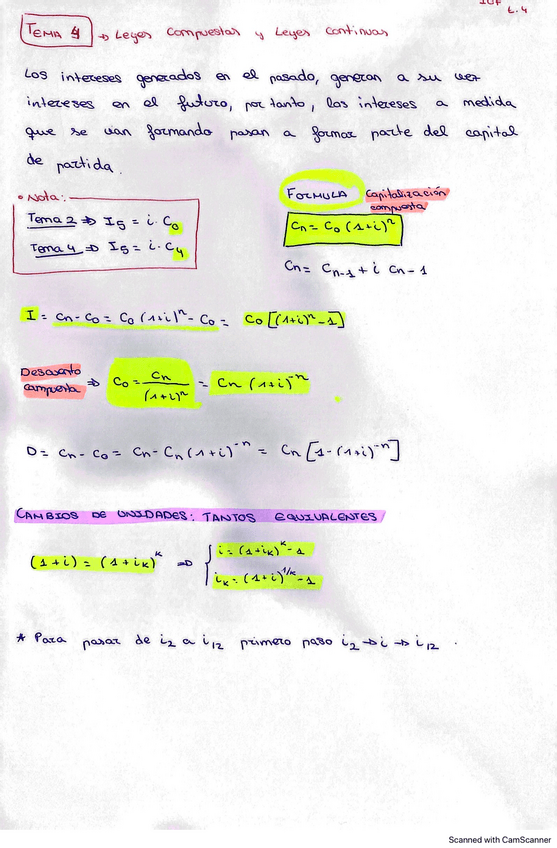 IOF
L.4
TEMA 4 → Leyes Compuestas y Leyes Continuas
Los intereses generados en el pasado, generan a su vez
intereses en el futuro, por tanto, los intereses a medida
que se van formando pasan a formar parte del capital
de partida.
• Nota:
Tema 2 ⇒ I5 = i · C0
Tema 4 ⇒ I5 = i · C4
FORMULA Capitalización
compuesta
Cn = C0 (1+i)^n
Cn = Cn-1 + i Cn-1
I = Cn - C0 = C0 (1+i)^n - C0 = C0 [(1+i)^n - 1]
Descuento
compuesta ⇒ C0 = Cn / (1+i)^n = Cn (1+i)^-n
D = Cn - C0 = Cn - Cn (1+i)^-n = Cn [1 - (1+i)^-n]
CAMBIOS DE UNIDADES: TANTOS EQUIVALENTES
(1+i) = (1+ik)^k ⇒ { i = (1+ik)^k - 1
ik = (1+i)^1/k - 1
* Para pasar de i2 a i12 primero paso i2 → i → i12.
Scanned with CamScanner